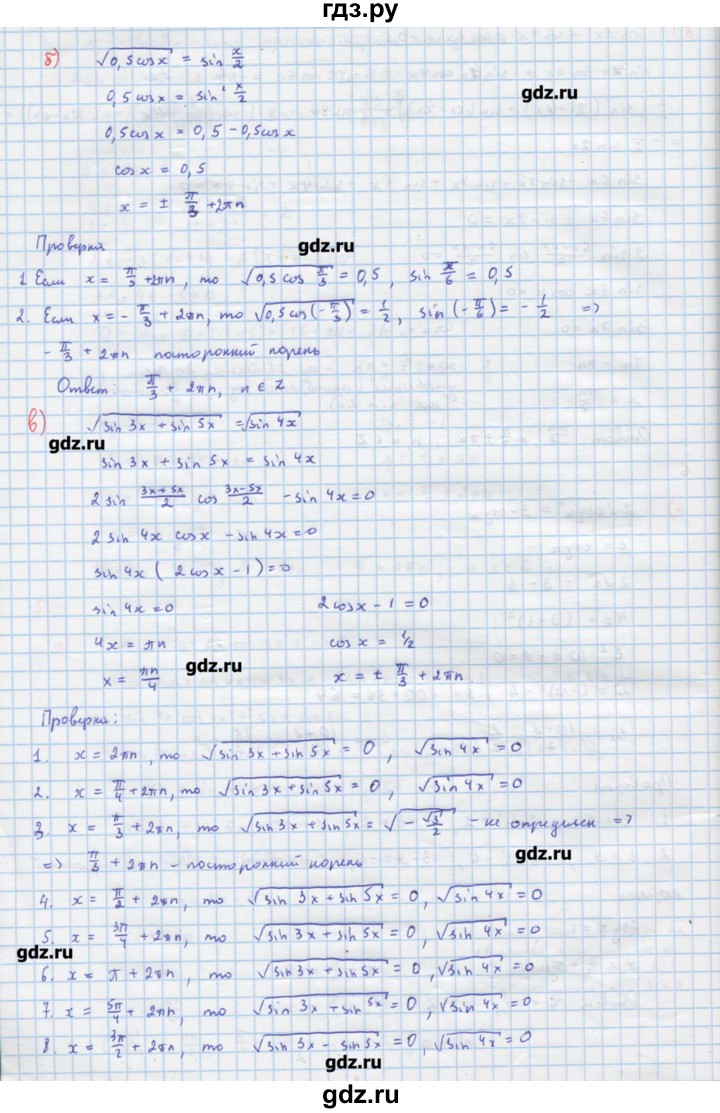 гдз.ру
б) √(0,5cosx) = sin x/2
gdz.ru
0,5 cosx = sin² x/2
0,5cosx = 0,5 - 0,5cosx
cosx = 0,5
x = ± π/3 + 2πn
Проверка
gdz.ru
1. Если x = π/3 + 2πn, то √(0,5 cos π/3) = 0,5, sin π/6 = 0,5
2. Если x = - π/3 + 2πn, то √(0,5 cos(-π/3)) = 1/2, sin(-π/6) = - 1/2 =>
- π/3 + 2πn посторонний корень
Ответ: π/3 + 2πn, n ∈ Z
в) √(sin 3x + sin 5x) = √(sin 4x)
gdz.ru
sin 3x + sin 5x = sin 4x
2 sin (3x+5x)/2 cos (3x-5x)/2 - sin 4x = 0
2 sin 4x cosx - sin 4x = 0
sin 4x ( 2cosx - 1) = 0
sin 4x = 0 2cosx - 1 = 0
4x = πn cosx = 1/2
gdz.ru
x = πn/4 x = ± π/3 + 2πn.
Проверка:
1. x = 2πn, то √(sin 3x + sin 5x) = 0, √(sin 4x) = 0
2. x = π/4 + 2πn, то √(sin 3x + sin 5x) = 0, √(sin 4x) = 0
3. x = π/3 + 2πn, то √(sin 3x + sin 5x) = √(- √3/2) - не определен =>
=> π/3 + 2πn - посторонний корень
gdz.ru
4. x = π/2 + 2πn, то √(sin 3x + sin 5x) = 0, √(sin 4x) = 0
5. x = 3π/4 + 2πn, то √(sin 3x + sin 5x) = 0, √(sin 4x) = 0
gdz.ru
6. x = π + 2πn, то √(sin 3x + sin 5x) = 0, √(sin 4x) = 0
7. x = 5π/4 + 2πn, то √(sin 3x + sin 5x) = 0, √(sin 4x) = 0
8. x = 3π/2 + 2πn, то √(sin 3x - sin 5x) = 0, √(sin 4x) = 0
gdz.ru